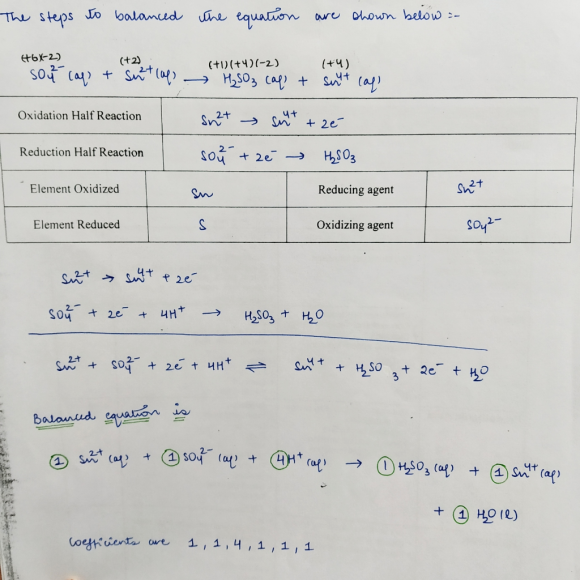 The steps to balanced the equation are shown below :-
(+6)(-2) (+2) (+1)(+4)(-2) (+4)
SO₄²⁻ (aq) + Sn²⁺(aq) → H₂SO₃ (aq) + Sn⁴⁺ (aq)
Oxidation Half Reaction Sn²⁺ → Sn⁴⁺ + 2e⁻
Reduction Half Reaction SO₄²⁻ + 2e⁻ → H₂SO₃
Element Oxidized Sn Reducing agent Sn²⁺
Element Reduced S Oxidizing agent SO₄²⁻
Sn²⁺ → Sn⁴⁺ + 2e⁻
SO₄²⁻ + 2e⁻ + 4H⁺ → H₂SO₃ + H₂O
Sn²⁺ + SO₄²⁻ + 2e⁻ + 4H⁺ ⇌ Sn⁴⁺ + H₂SO₃ + 2e⁻ + H₂O
Balanced equation is
① Sn²⁺ (aq) + ① SO₄²⁻ (aq) + ④ H⁺ (aq) → ① H₂SO₃ (aq) + ① Sn⁴⁺ (aq)
+ ① H₂O (l)
Coefficients are 1, 1, 4, 1, 1, 1